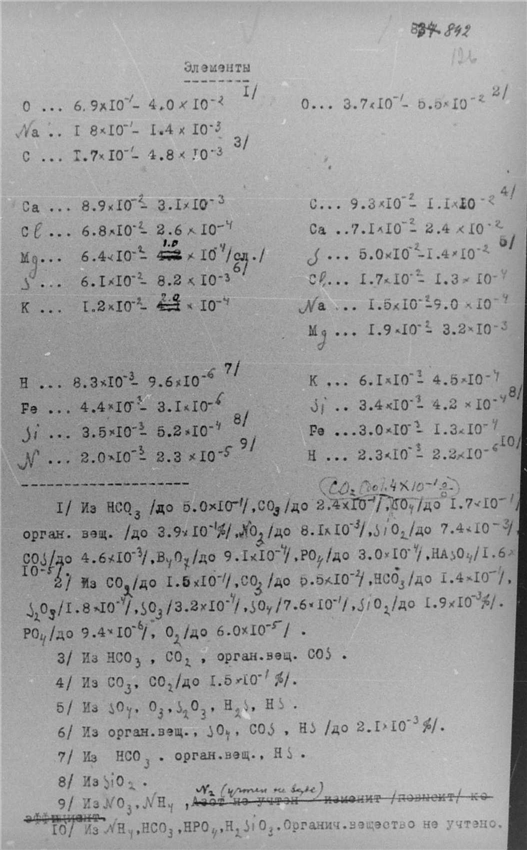 842
126
Элементы
O ... 6.9×10⁻¹- 4.0 × 10⁻² 1/ O... 3.7×10⁻¹- 5.5×10⁻² 2/
Na .. 1 8×10⁻¹- 1.4 × 10⁻³
C ... 1.7×10⁻¹- 4.8 × 10⁻³ 3/
Ca ... 8.9×10⁻²- 3.1×10⁻³ C... 9.3×10⁻²- 1.1×10⁻² 4/
Cl ... 6.8×10⁻²- 2.6 × 10⁻⁴ Ca ..7.1×10⁻²- 2.4 × 10⁻²
Mg ... 6.4×10⁻²- 1.0 × 10⁻⁴/сл./ S ... 5.0×10⁻²-1.4×10⁻² 5/
S ... 6.1×10⁻²- 8.2 × 10⁻³ 6/ Cl... 1.7×10⁻²- 1.3 × 10⁻⁴
K ... 1.2×10⁻²- 2.0 × 10⁻⁴ Na ... 1.5×10⁻²-9.0 × 10⁻⁴
Mg ... 1.9×10⁻²- 3.2×10⁻³
H ... 8.3×10⁻³- 9.6×10⁻⁶ 7/ K ... 6.1×10⁻³- 4.5×10⁻⁴
Fe ... 4.4×10⁻³- 3.1×10⁻⁶ Si .. 3.4×10⁻³- 4.2 × 10⁻⁴ 8/
Si ... 3.5×10⁻³- 5.2×10⁻⁴ 8/ Fe ...3.0×10⁻³- 1.3×10⁻⁴
N ... 2.0×10⁻³- 2.3 × 10⁻⁵ 9/ H ... 2.3×10⁻³- 2.2×10⁻⁶ 10/
1/ Из HCO₃ /до 5.0×10⁻¹/,CO₃/до 2.4×10⁻¹/,SO₄/до 1.7×10⁻¹/
орган. вещ. /до 3.9×10⁻¹%/,NO₂/до 8.1×10⁻³/,SiO₂/до 7.4×10⁻³/
COS/до 4.6×10⁻³/,B₄O₇/до 9.1×10⁻⁴/,PO₄/до 3.0×10⁻⁴/,HAsO₄/1.6×
10⁻⁵/
2/ Из CO₂/до 1.5×10⁻¹/,CO₃/до 5.5×10⁻²/,HCO₃/до 1.4×10⁻¹/,
S₂O₃/1.8×10⁻⁴/,SO₃/3.2×10⁻⁴/,SO₄/7.6×10⁻¹/,SiO₂/до 1.9×10⁻³%/.
PO₄/до 9.4×10⁻⁶/, O₂/до 6.0×10⁻⁵/ .
3/ Из HCO₃ , CO₂ , орган.вещ. COS .
4/ Из CO₃, CO₂/до 1.5×10⁻¹%/.
5/ Из SO₄, O₃,S₂O₃, H₂S, HS.
6/ Из орган.вещ., SO₄, COS , HS /до 2.1×10⁻³%/.
7/ Из HCO₃ . орган.вещ., HS.
8/ Из SiO₂.
9/ Из NO₃,NH₄ , N₂ (учтен не везде) Азот не учтен изменит /повысит/ ко
эффициент.
10/ Из NH₄,HCO₃,HPO₄,H₂SiO₃.Органич.вещество не учтено.